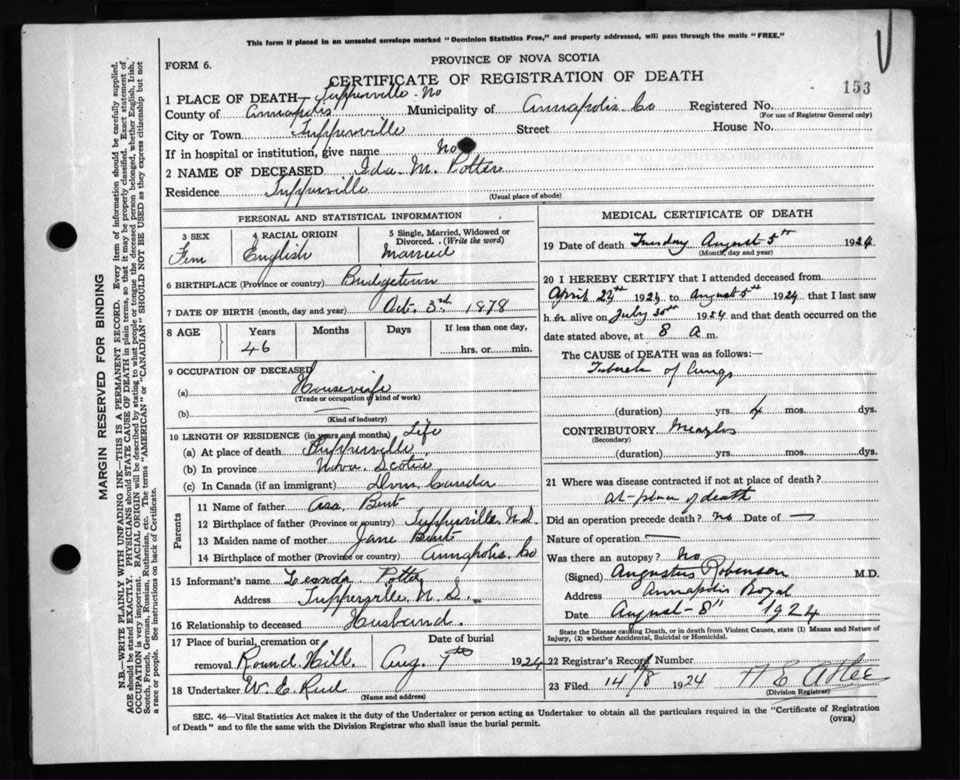 This form if placed in an unsealed envelope marked "Dominion Statistics Free," and properly addressed, will pass through the mails "FREE."
FORM 6.
PROVINCE OF NOVA SCOTIA
CERTIFICATE OF REGISTRATION OF DEATH
153
1 PLACE OF DEATH— Tupperville No
County of Annapolis Municipality of Annapolis Co Registered No.
(For use of Registrar General only)
City or Town Tupperville Street House No.
If in hospital or institution, give name No
2 NAME OF DECEASED Ida M. Potter
Residence Tupperville
(Usual place of abode)
PERSONAL AND STATISTICAL INFORMATION
3 SEX 4 RACIAL ORIGIN 5 Single, Married, Widowed or Divorced. (Write the word)
Fem English Married
6 BIRTHPLACE (Province or country) Bridgetown
7 DATE OF BIRTH (month, day and year) Oct. 3rd 1878
8 AGE Years Months Days If less than one day,
46 hrs. or min.
9 OCCUPATION OF DECEASED
(a) Housewife
(Trade or occupation of kind of work)
(b) —
(Kind of industry)
10 LENGTH OF RESIDENCE (in years and months) Life
(a) At place of death Tupperville
(b) In province Nova Scotia
(c) In Canada (if an immigrant) Canada
Parents
11 Name of father Asa Bent
12 Birthplace of father (Province or country) Tupperville N.S.
13 Maiden name of mother Jane Bent
14 Birthplace of mother (Province or country) Annapolis Co
15 Informant's name Potter
Address Tupperville N.S.
16 Relationship to deceased Husband.
17 Place of burial, cremation or Date of burial
removal Round Hill. Aug. 7th 1924
18 Undertaker W. E. Reed
(Name and address)
MEDICAL CERTIFICATE OF DEATH
19 Date of death Tuesday August 5th 1924
(Month, day and year)
20 I HEREBY CERTIFY that I attended deceased from
April 24th 1924 to August 5th 1924 that I last saw
her alive on July 30th 1924 and that death occurred on the
date stated above, at 8 a m.
The CAUSE of DEATH was as follows:—
of Lungs
(duration) yrs. 4 mos. dys.
CONTRIBUTORY Meazles
(Secondary)
(duration) yrs. mos. dys.
21 Where was disease contracted if not at place of death?
at place of death
Did an operation precede death? no Date of —
Nature of operation —
Was there an autopsy? No
(Signed) Augustus Robinson M.D.
Address Annapolis Royal
Date August 8" 1924
State the Disease causing Death, or in death from Violent Causes, state (1) Means and Nature of
Injury, (2) whether Accidental, Suicidal or Homicidal.
22 Registrar's Record Number
23 Filed 14/8 1924 H E Atlee
(Division Registrar)
SEC. 46—Vital Statistics Act makes it the duty of the Undertaker or person acting as Undertaker to obtain all the particulars required in the "Certificate of Registration
of Death" and to file the same with the Division Registrar who shall issue the burial permit.
(OVER)
MARGIN RESERVED FOR BINDING
N.B.—WRITE PLAINLY WITH UNFADING INK—THIS IS A PERMANENT RECORD. Every item of information should be carefully supplied.
AGE should be stated EXACTLY. PHYSICIANS should STATE CAUSE OF DEATH in plain terms, so that it may be properly classified. Exact statement of
OCCUPATION is very important. RACIAL ORIGIN will be described by stating to what people or tongue the deceased person belonged, whether English, Irish,
Scotch, French, German, Russian, Ruthenian, etc. The terms "AMERICAN" or "CANADIAN" SHOULD NOT BE USED as they express citizenship but not
a race or people. See instructions on back of Certificate.